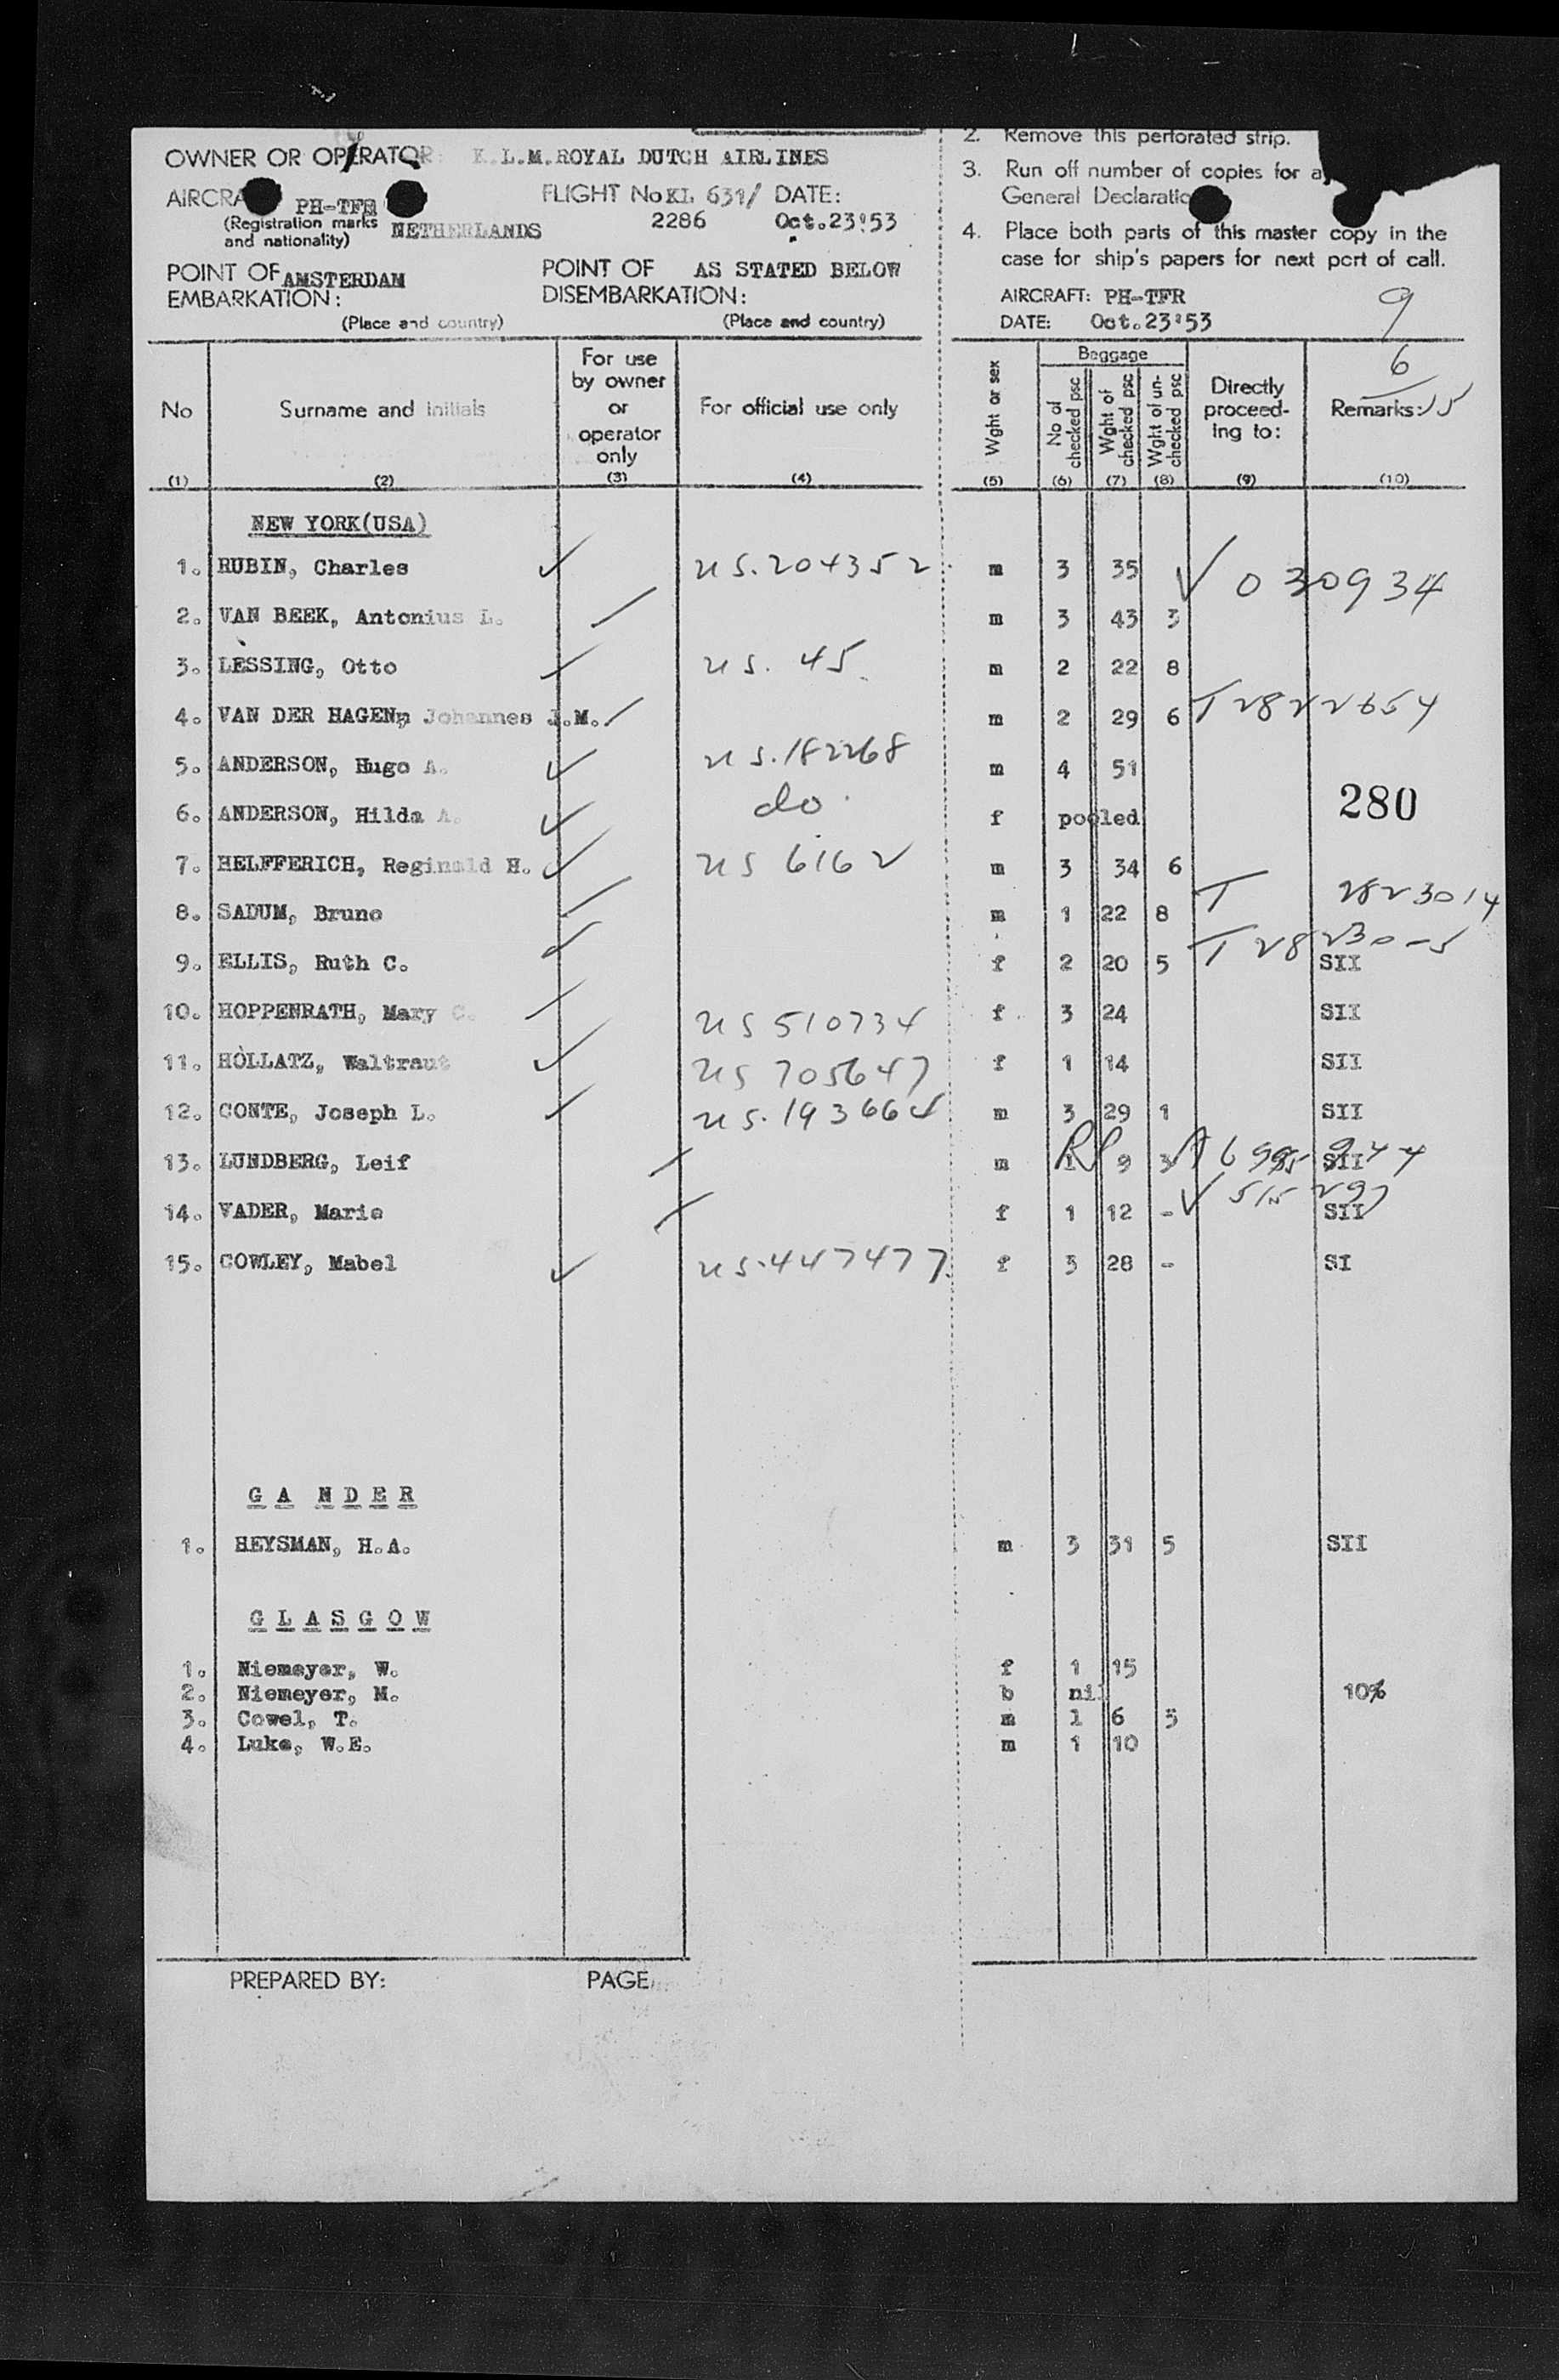 OWNER OR OPERATOR: K.L.M. ROYAL DUTCH AIRLINES
AIRCRA PH-TFR FLIGHT No KL 631/ DATE:
(Registration marks and nationality) NETHERLANDS 2286 Oct.23'53
POINT OF EMBARKATION: AMSTERDAM POINT OF DISEMBARKATION: AS STATED BELOW
(Place and country) (Place and country)
2. Remove this perforated strip.
3. Run off number of copies for a
General Declaratio
4. Place both parts of this master copy in the
case for ship's papers for next port of call.
AIRCRAFT: PH-TFR 9
DATE: Oct.23'53
6
15
No Surname and initials For use by owner or operator only For official use only Wght or sex Baggage No of checked psc Wght of checked psc Wght of un-checked psc Directly proceed-ing to: Remarks:
(1) (2) (3) (4) (5) (6) (7) (8) (9) (10)
NEW YORK(USA)
1. RUBIN, Charles ✓ US.204352 m 3 35
V 030934
2. VAN BEEK, Antonius L. m 3 43 3
3. LESSING, Otto US. 45 m 2 22 8
4. VAN DER HAGEN, Johannes J.M. m 2 29 6 T2822654
5. ANDERSON, Hugo A. ✓ US.182268 m 4 51
6. ANDERSON, Hilda A. ✓ do. f pooled
280
7. HELFFERICH, Reginald H. ✓ US 6162 m 3 34 6
8. SADUM, Bruno m 1 22 8 T 2823014
9. ELLIS, Ruth C. f 2 20 5 T 2823005 SII
10. HOPPENRATH, Mary C. US 510734 f 3 24 SII
11. HOLLATZ, Waltraut ✓ US 705647 f 1 14 SII
12. CONTE, Joseph L. US.193664 m 3 29 1 SII
13. LUNDBERG, Leif m 1 9 3 SII
14. VADER, Marie f 1 12 - V 515297 SII
15. COWLEY, Mabel ✓ US.447477 f 3 28 - SI
G A N D E R
1. HEYSMAN, H.A. m 3 31 5 SII
G L A S G O W
1. Niemeyer, W. f 1 15
2. Niemeyer, M. b nil 10%
3. Cowel, T. m 1 6 5
4. Luke, W.E. m 1 10
PREPARED BY: PAGE